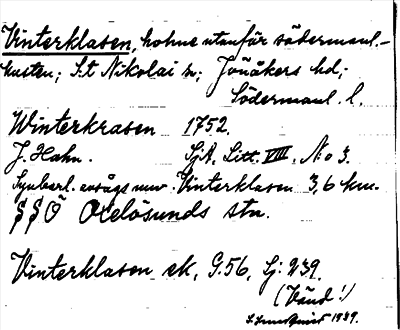 Vinterklasen, holme utanför södermanl.-
kusten; S:t Nikolai sn; Jönåkers hd;
Södermanl. l.
Winterkrasen 1752.
J. Hahn. SjA, Litt. VIII, No 3.
Vinterklasen 3,6 km.
SSÖ Oxelösunds stn.
Vinterklasen ek, G.56, Sj: 239.
(Vänd!)
1939.